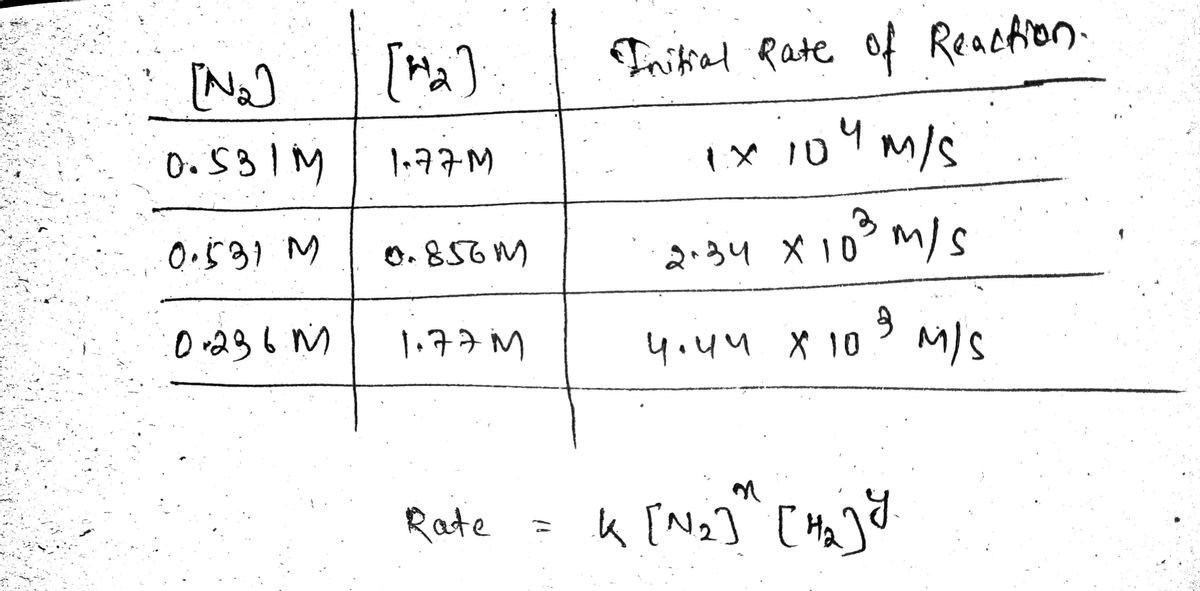 [N₂] [H₂] Initial Rate of Reaction.
0.531 M 1.77 M 1 × 10⁴ M/S
0.531 M 0.856 M 2.34 × 10³ M/S
0.236 M 1.77 M 4.44 × 10³ M/S
Rate = k [N₂]ˣ [H₂]ʸ